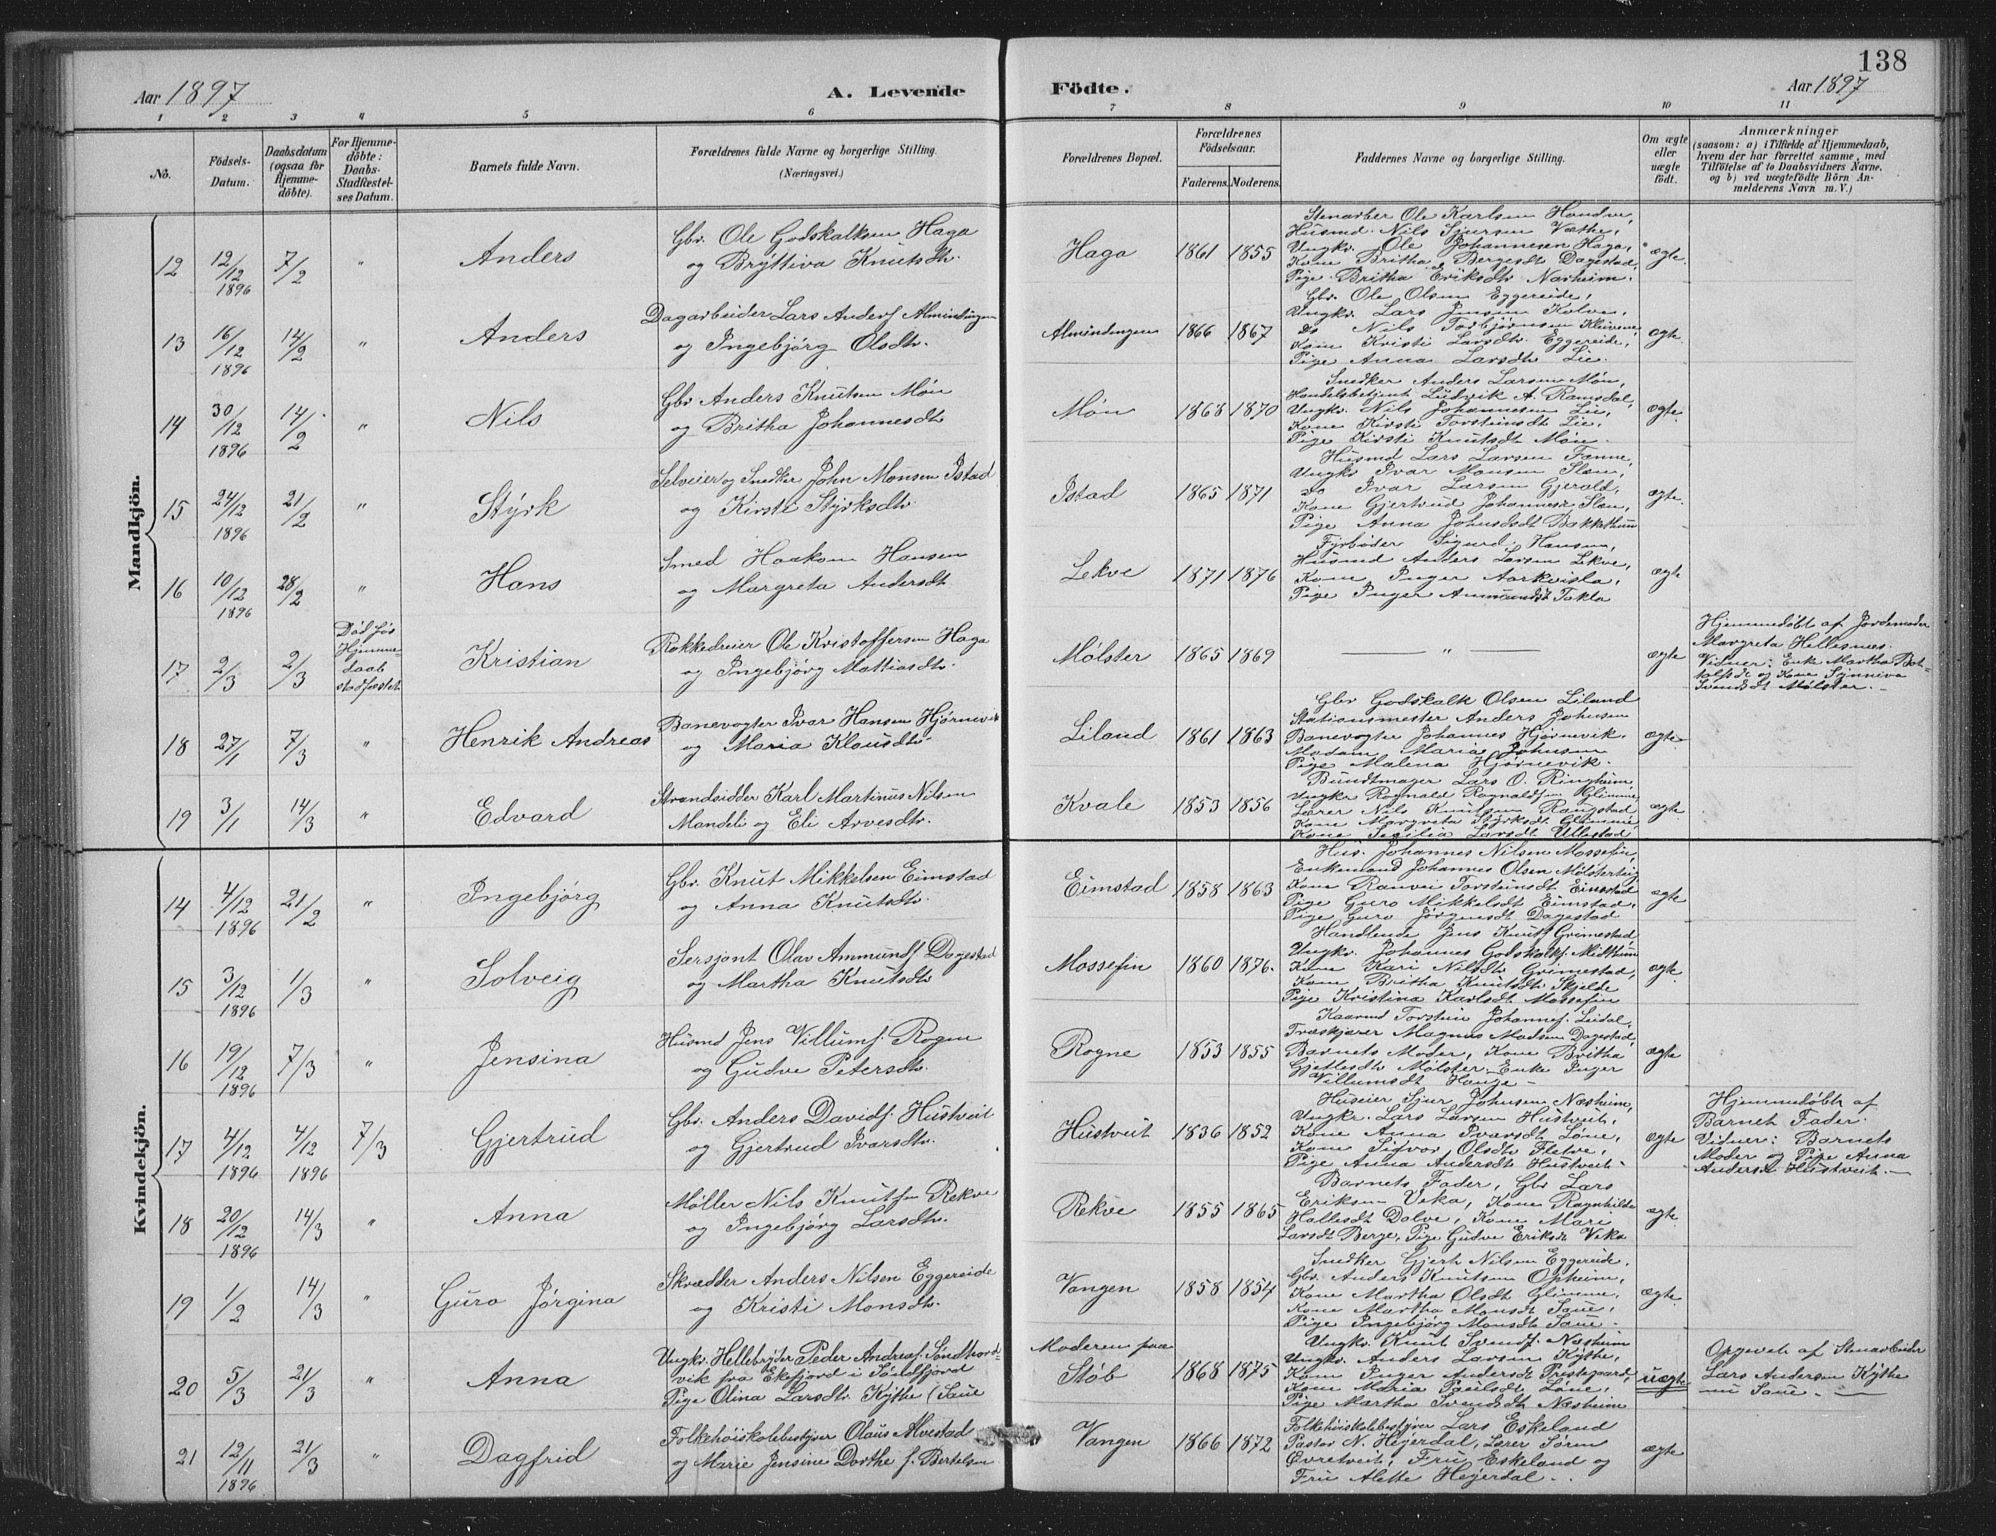 138
Aar 1897 A. Levende Födte. Aar 1897
1 2 3 4 5 6 7 8 9 10 11
No.
Födsels-Datum.
Daabsdatum (ogsaa for Hjemmedöbte).
For Hjemmedöbte: Daabs-Stadfæstelses Datum.
Barnets fulde Navn.
Forældrenes fulde Navne og borgerlige Stilling.
(Næringsvei.)
Forældrenes Bopæl.
Forældrenes Födselsaar.
Faderens. Moderens.
Faddernes Navne og borgerlige Stilling.
Om ægte eller uægte födt.
Anmærkninger
(saasom: a) i Tilfælde af Hjemmedaab, hvem der har forrettet samme, med Tilföielse af to Daabsvidners Navne. og b) ved uægtefödte Börn Anmelderens Navn m. V.)
Mandkjön.
12 12/12 1896 7/2 " Anders
Gbr. Ole Godskalksen Haga
og Bryttiva Knutsdtr.
Haga 1861 1855
Stenarber Ole Karlsen Handve,
Husmd. Nils Sjursen Væthe,
Ungkr. Ole Johannesen Haga,
Kone Britha Bergesdt Dagestad,
Pige Britha Eriksdtr. Nærheim.
ægte.
13 16/12 1896 14/2 " Anders
Dagarbeider Lars Anders. Almindingen
og Ingebjörg Olsdtr.
Almindingen 1866 1867
Gbr. Ole Olsen Eggereide,
Ungkr. Lars Jensen Kolve,
Do Nils Torbjørnsen Kleivene,
Kone Kristi Larsdtr. Eggereide,
Pige Anna Larsdtr Lie.
ægte
14 30/12 1896 14/2 " Nils
Gbr Anders Knutsen Møn
og Britha Johannesdtr.
Møn 1868 1870
Snedker Anders Larsen Møn,
Handelsbetjent Ludvik A. Ramsdal,
Ungkr. Nils Johannesen Lie,
Kone Kirsti Torsteinsdt Lie,
Pige Kirsti Knutsdt Møn.
ægte
15 24/12 1896 21/2 " Styrk
Selveier og Snedker John Monsen Istad
og Kirsti Styrksdtr.
Istad 1865 1871
Husmd Lars Larsen Fenne,
Ungkr Ivar Monsen Sløen,
Do Ivar Larsen Gjerald,
Kone Gjertrud Johannesdt Sløen,
Pige Anna Johnsdt Bakkethun
ægte
16 10/12 1896 28/2 " Hans
Smed Haakon Hansen
og Margreta Andersdt
Lekve 1871 1876
Fyrbøder Sigurd Hansen,
Husmd Anders Larsen Lekve,
Kone Inger Aarkvisla,
Pige Inger Ammundsdt Takla
ægte
17 2/3 2/3
Hjemmedaab stadfæstet
Kristian
Rokkedreier Ole Kristoffersen Haga
og Ingebjörg Mattiasdtr.
Mølster 1865 1869
— " —
ægte
Hjemmedøbt af Jordemoder
Margreta Hellesnes.
Vidner: Enke Martha Botolfsdt og Kone Synniva
Svendsdt Mølster. —
18 27/1 7/3 " Henrik Andreas
Banevogter Ivar Hansen Hjørnevik
og Maria Klausdtr.
Liland 1861 1863
Gbr Godskalk Olsen Liland
Stationsmester Anders Johnsen
Banevogter Johannes Hjørnevik.
Madam Maria Johnsen
Pige Malena Hjørnevik.
ægte
19 3/1 14/3 " Edvard
Strandsidder Karl Martinus Nilsen
Mandeli og Eli Arvesdtr.
Kvale 1853 1856
Bundtmager Lars O. Ringheim,
Ungkr Ragnald Ragnaldsen Glimme,
Lærer Nils Knutsen Raugstad,
Kone Margreta Styrksdt Glimme,
Kone Sesilia Larsdt Ullestad
ægte
Kvindekjön.
14 4/12 1896 21/2 " Ingebjörg
Gbr. Knut Mikkelsen Eimstad
og Anna Knutsdtr.
Eimstad 1858 1863
Hus. Johannes Nilsen Mossefin,
Enkemand Johannes Olsen Mølsterteig
Kone Ranvei Torsteinsdt Eimstad
Pige Guro Mikkelsdt Eimstad,
Pige Guro Jørgensdt Dagestad
ægte
15 3/12 1896 1/3 " Solveig
Sersjant Olav Ammunds. Dagestad
og Martha Knutsdtr
Mossefin 1860 1876.
Handlende Jens Knuts. Grimestad
Ungkr. Johannes Godskalks. Midthun
Kone Kari Nilsdtr Grimestad,
Kone Britha Knutsdt Skjelde
Pige Kristina Karlsdt Mossefin
ægte
16 19/12 1896 7/3 " Jensina
Husmd Jens Villums. Rogne
og Gudve Petersdtr.
Rogne 1853 1855
Kaarmd Torstein Johannes. Leidal,
Træskjærer Magnus Madsen Dagestad,
Barnets Moder, Kone Britha
Gjetlesdt Mølster, Enke Inger
Villumsdt Hauge —
ægte
17 4/12 1896 4/12 1896 7/3 Gjertrud
Gbr. Anders Davids. Hustveit
og Gjertrud Ivarsdtr.
Hustveit 1836 1852
Huseier Sjur Johnsen Næsheim,
Ungkr. Lars Larsen Hustveit,
Kone Anna Ivarsdt Løne,
Kone Sigvor Olsdtr Fletve,
Pige Anna Andersdt Hustveit.
ægte
Hjemmedøbt af
Barnets Fader.
Vidner: Barnets
Moder og Pige Anna
Andersdt Hustveit. —
18 20/12 1896 14/3 " Anna
Møller Nils Knutsen Rekve
og Ingebjörg Larsdtr.
Rekve 1855 1865
Barnets Fader, Gbr Lars
Eriksen Veka, Kone Ragnhilda
Hallesdt Dolve, Kone Mari
Larsdt Berge, Pige Gudve Eriksdt Veka
ægte.
19 1/2 14/3 " Guro Jørgina
Skrædder Anders Nilsen Eggereide
og Kristi Monsdtr.
Vangen 1858 1854
Snedker Gjert Nilsen Eggereide,
Gbr. Anders Knutsen Opheim,
Kone Martha Olsdt Glimme,
Kone Martha Monsdt Saue,
Pige Ingebjørg Monsdt Saue.
ægte
20 5/3 21/3 " Anna
Ungkr. Hellebryder Peder Andreas. Søndhordvik fra Ekefjord i Söndfjord
Pige Olina Larsdtr. Kythe (Saue
Moderen paa
Støb 1868 1875
Ungkr. Knut Svends. Næsheim
Ungkr. Anders Larsen Kythe,
Kone Inger Andersdt Prestegaard,
Kone Maria Paulsdt Løne,
Pige Martha Svendsdt Næsheim
uægte
Opgivet af Stenarbeider
Lars Andersen Kythe
nu Saue. —
21 12/11 1896 21/3 " Dagfrid
Folkehøiskolebestyrer Olaus Alvestad
og Marie Jensine Dorthe f. Bertelsen
Vangen 1866 1872
Folkehøiskolebestyrer Lars Eskeland
Pastor N. Heyerdal, Lærer Søren
Øvretveit, Fru Eskeland og
Fru Alette Heyerdal. —
ægte